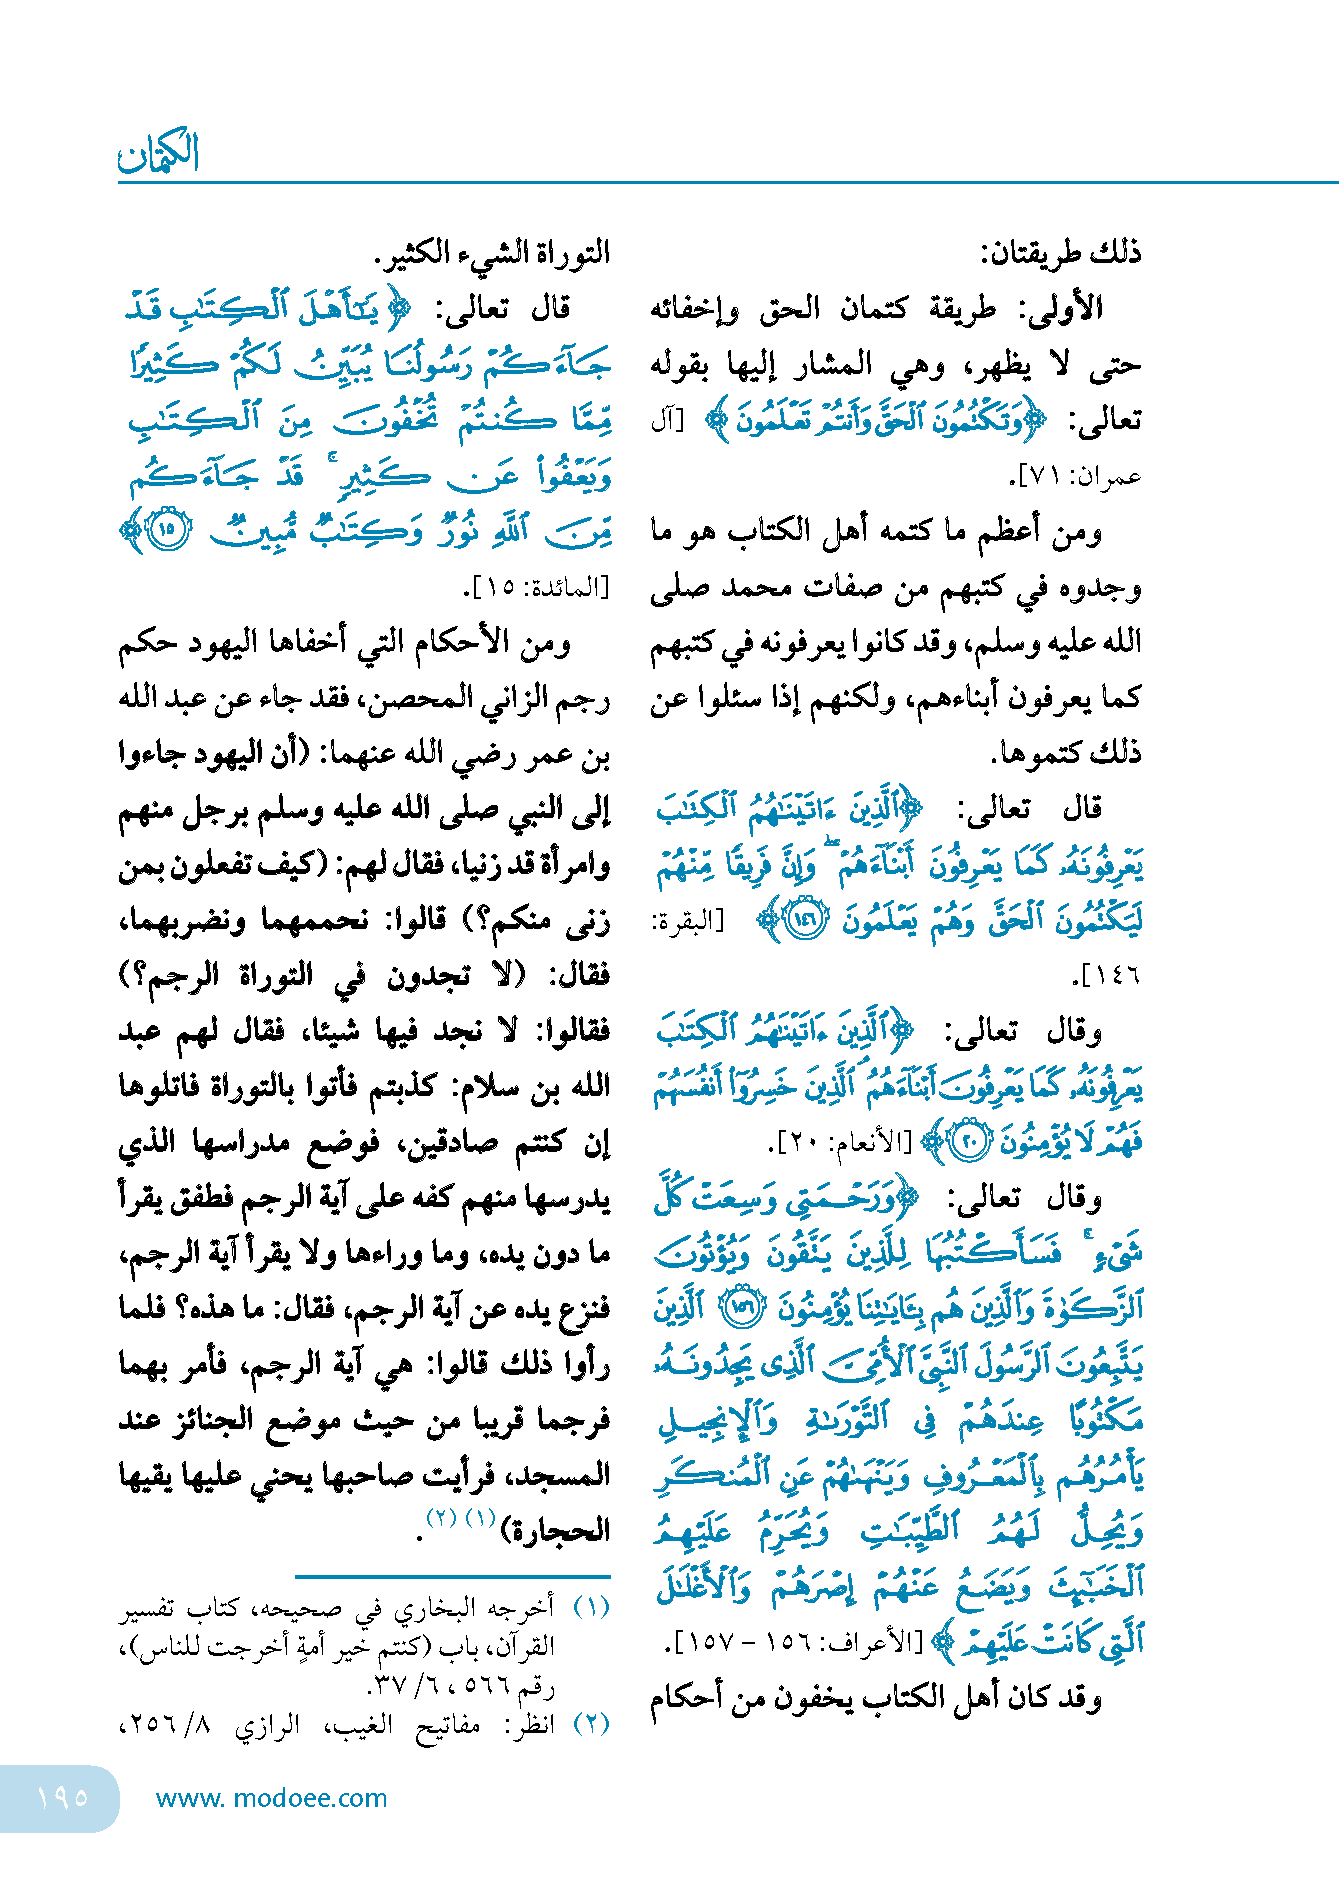 الكتمان
ذلك طريقتان:
الأولى: طريقة كتمان الحق وإخفائه
حتى لا يظهر، وهي المشار إليها بقوله
تعالى: ﴿وَتَكْتُمُونَ ٱلْحَقَّ وَأَنتُمْ تَعْلَمُونَ﴾ [آل
عمران: ٧١].
ومن أعظم ما كتمه أهل الكتاب هو ما
وجدوه في كتبهم من صفات محمد صلى
الله عليه وسلم، وقد كانوا يعرفونه في كتبهم
كما يعرفون أبناءهم، ولكنهم إذا سئلوا عن
ذلك كتموها.
قال تعالى: ﴿ٱلَّذِينَ ءَاتَيْنَٰهُمُ ٱلْكِتَٰبَ
يَعْرِفُونَهُۥ كَمَا يَعْرِفُونَ أَبْنَآءَهُمْ ۖ وَإِنَّ فَرِيقًا مِّنْهُمْ
لَيَكْتُمُونَ ٱلْحَقَّ وَهُمْ يَعْلَمُونَ ١٤٦﴾ [البقرة:
١٤٦].
وقال تعالى: ﴿ٱلَّذِينَ ءَاتَيْنَٰهُمُ ٱلْكِتَٰبَ
يَعْرِفُونَهُۥ كَمَا يَعْرِفُونَ أَبْنَآءَهُمُ ۘ ٱلَّذِينَ خَسِرُوٓا۟ أَنفُسَهُمْ
فَهُمْ لَا يُؤْمِنُونَ ٢٠﴾ [الأنعام: ٢٠].
وقال تعالى: ﴿وَرَحْمَتِى وَسِعَتْ كُلَّ
شَىْءٍ ۚ فَسَأَكْتُبُهَا لِلَّذِينَ يَتَّقُونَ وَيُؤْتُونَ
ٱلزَّكَوٰةَ وَٱلَّذِينَ هُم بِـَٔايَٰتِنَا يُؤْمِنُونَ ١٥٦ ٱلَّذِينَ
يَتَّبِعُونَ ٱلرَّسُولَ ٱلنَّبِىَّ ٱلْأُمِّىَّ ٱلَّذِى يَجِدُونَهُۥ
مَكْتُوبًا عِندَهُمْ فِى ٱلتَّوْرَىٰةِ وَٱلْإِنجِيلِ
يَأْمُرُهُم بِٱلْمَعْرُوفِ وَيَنْهَىٰهُمْ عَنِ ٱلْمُنكَرِ
وَيُحِلُّ لَهُمُ ٱلطَّيِّبَٰتِ وَيُحَرِّمُ عَلَيْهِمُ
ٱلْخَبَٰٓئِثَ وَيَضَعُ عَنْهُمْ إِصْرَهُمْ وَٱلْأَغْلَٰلَ
ٱلَّتِى كَانَتْ عَلَيْهِمْ﴾ [الأعراف: ١٥٦ - ١٥٧].
وقد كان أهل الكتاب يخفون من أحكام
التوراة الشيء الكثير.
قال تعالى: ﴿يَٰٓأَهْلَ ٱلْكِتَٰبِ قَدْ
جَآءَكُمْ رَسُولُنَا يُبَيِّنُ لَكُمْ كَثِيرًا
مِّمَّا كُنتُمْ تُخْفُونَ مِنَ ٱلْكِتَٰبِ
وَيَعْفُوا۟ عَن كَثِيرٍ ۚ قَدْ جَآءَكُم
مِّنَ ٱللَّهِ نُورٌ وَكِتَٰبٌ مُّبِينٌ ١٥﴾
[المائدة: ١٥].
ومن الأحكام التي أخفاها اليهود حكم
رجم الزاني المحصن، فقد جاء عن عبد الله
بن عمر رضي الله عنهما: (أن اليهود جاءوا
إلى النبي صلى الله عليه وسلم برجل منهم
وامرأة قد زنيا، فقال لهم: (كيف تفعلون بمن
زنى منكم؟) قالوا: نحممهما ونضربهما،
فقال: (لا تجدون في التوراة الرجم؟)
فقالوا: لا نجد فيها شيئا، فقال لهم عبد
الله بن سلام: كذبتم فأتوا بالتوراة فاتلوها
إن كنتم صادقين، فوضع مدراسها الذي
يدرسها منهم كفه على آية الرجم فطفق يقرأ
ما دون يده، وما وراءها ولا يقرأ آية الرجم،
فنزع يده عن آية الرجم، فقال: ما هذه؟ فلما
رأوا ذلك قالوا: هي آية الرجم، فأمر بهما
فرجما قريبا من حيث موضع الجنائز عند
المسجد، فرأيت صاحبها يحني عليها يقيها
الحجارة)(١) (٢).
(١) أخرجه البخاري في صحيحه، كتاب تفسير
القرآن، باب (كنتم خير أمةٍ أخرجت للناس)،
رقم ٥٦٦ ، ٦/ ٣٧.
(٢) انظر: مفاتيح الغيب، الرازي ٨/ ٢٥٦،
www. modoee.com
١٩٥